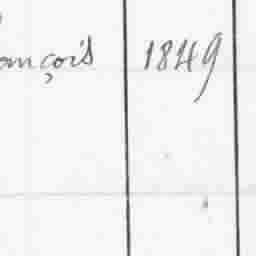 ançois 1849